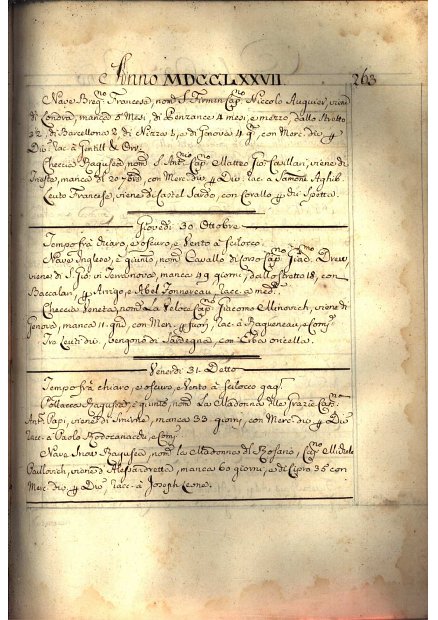 Anno MDCCLXXVII. 263
Nave Breg.no Francesa, nom.a S. Firmin Cap.no Niccolo Auguier, viene
di Londra, manca 5 Mesi, di Penzance 4 mesi, e mezzo, dallo Stretto
22, di Barcellona 2 di Nizza 5, e di Genova 4 g.i, con Merc. div. p
Div. racc. a Gentill & Orr.
Checcia Ragusea, nom.a S. Ant.o Cap.no Matteo Gio: Casillari, viene di
manca di 20 con Merc. div. p Div. racc. a Samone Aghib
Leuto Francese, viene di Castel Sardo, con Corallo p di Spetta.
Giovedi 30. Ottobre
Tempo frà chiaro, e oscuro, e Vento a Scilocco.
Nave Inglese, è giunto, nom.a Cavallo di Cap.no Drew
viene di S. Gio: in Terranova, manca 49 giorni, dallo stretto 18, con
Baccalari, p Arrigo, e Abel Fonnereau, racc. a med.i
Checcia Veneta, nom.a La Veloce Cap.no Giacomo Milinovich, viene di
Genova, manca 11. g.ni con Mer. p fuori, racc. a Ragueneau, e Comp.
Tre Leuti div. vengono di Sardegna, con Erba oricella.
Venerdi 31. Detto
Tempo frà chiaro, e oscuro, e Vento a Scilocco gag.o
Pollacca Ragusea, è giunta, nom.a La Madonna delle Grazie Cap.no
Ant.o Papi, viene di Smirne, manca 33. giorni, con Merc. div. p Div.
racc. a Paolo Rodocanacchi, e Comp.
Nave Ragusea, nom.a la Madonna di Rosario, Cap.no Michele
Paulovich, viene d'Alessandretta, manca 60 giorni, e di Cipro 35 con
Merc. div. p Div., racc. a Joseph Leone.